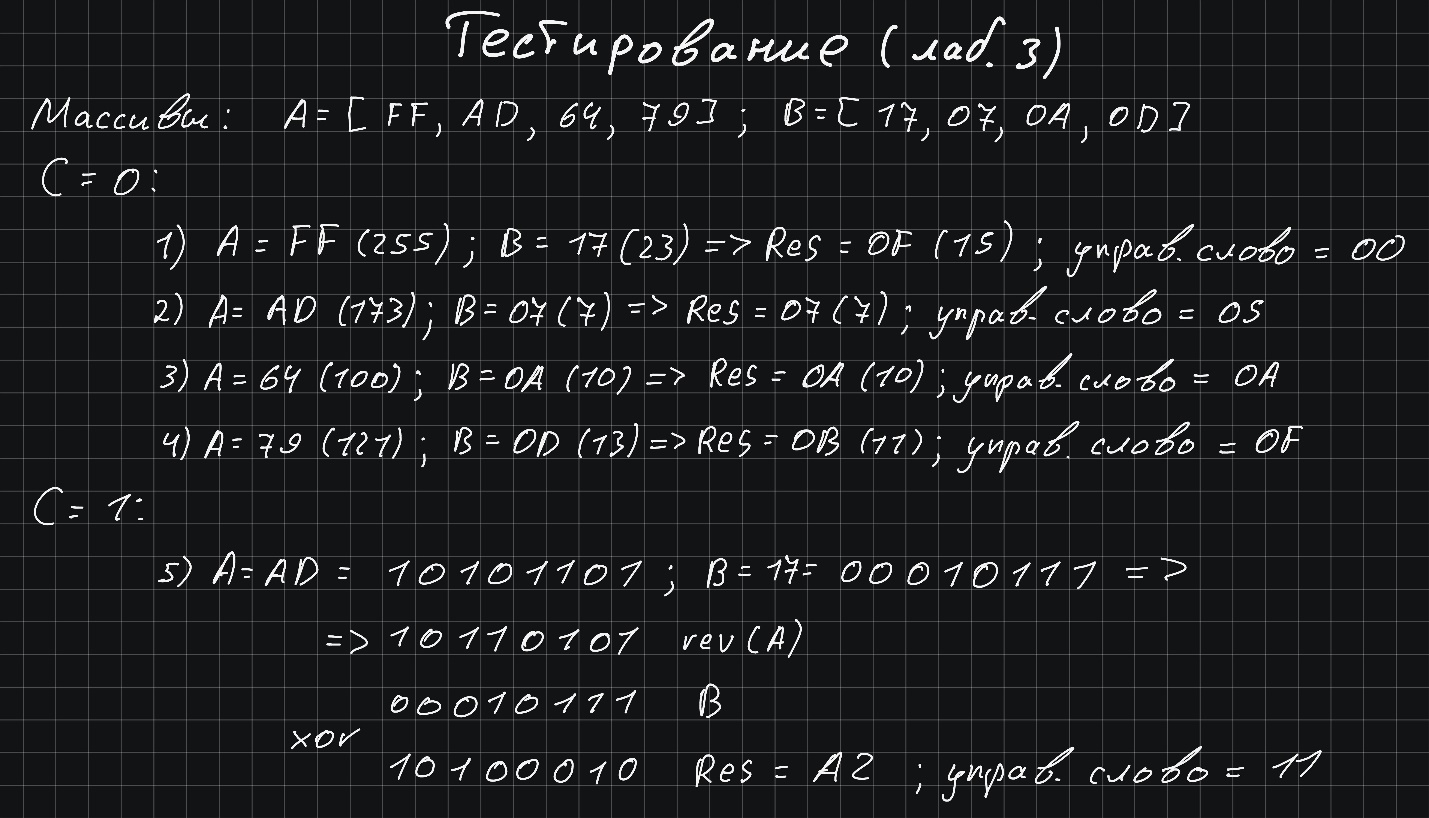 Тестирование (лаб. 3)
Массивы: A = [ FF, AD, 64, 79 ] ; B = [ 17, 07, 0A, 0D ]
C = 0:
1) A = FF (255) ; B = 17 (23) => Res = 0F (15) ; управ. слово = 00
2) A = AD (173) ; B = 07 (7) => Res = 07 (7) ; управ. слово = 05
3) A = 64 (100) ; B = 0A (10) => Res = 0A (10) ; управ. слово = 0A
4) A = 79 (121) ; B = 0D (13) => Res = 0B (11) ; управ. слово = 0F
C = 1:
5) A = AD = 10101101 ; B = 17 = 00010111 =>
=> 10110101 rev (A)
00010111 B
xor
10100010 Res = A2 ; управ. слово = 11